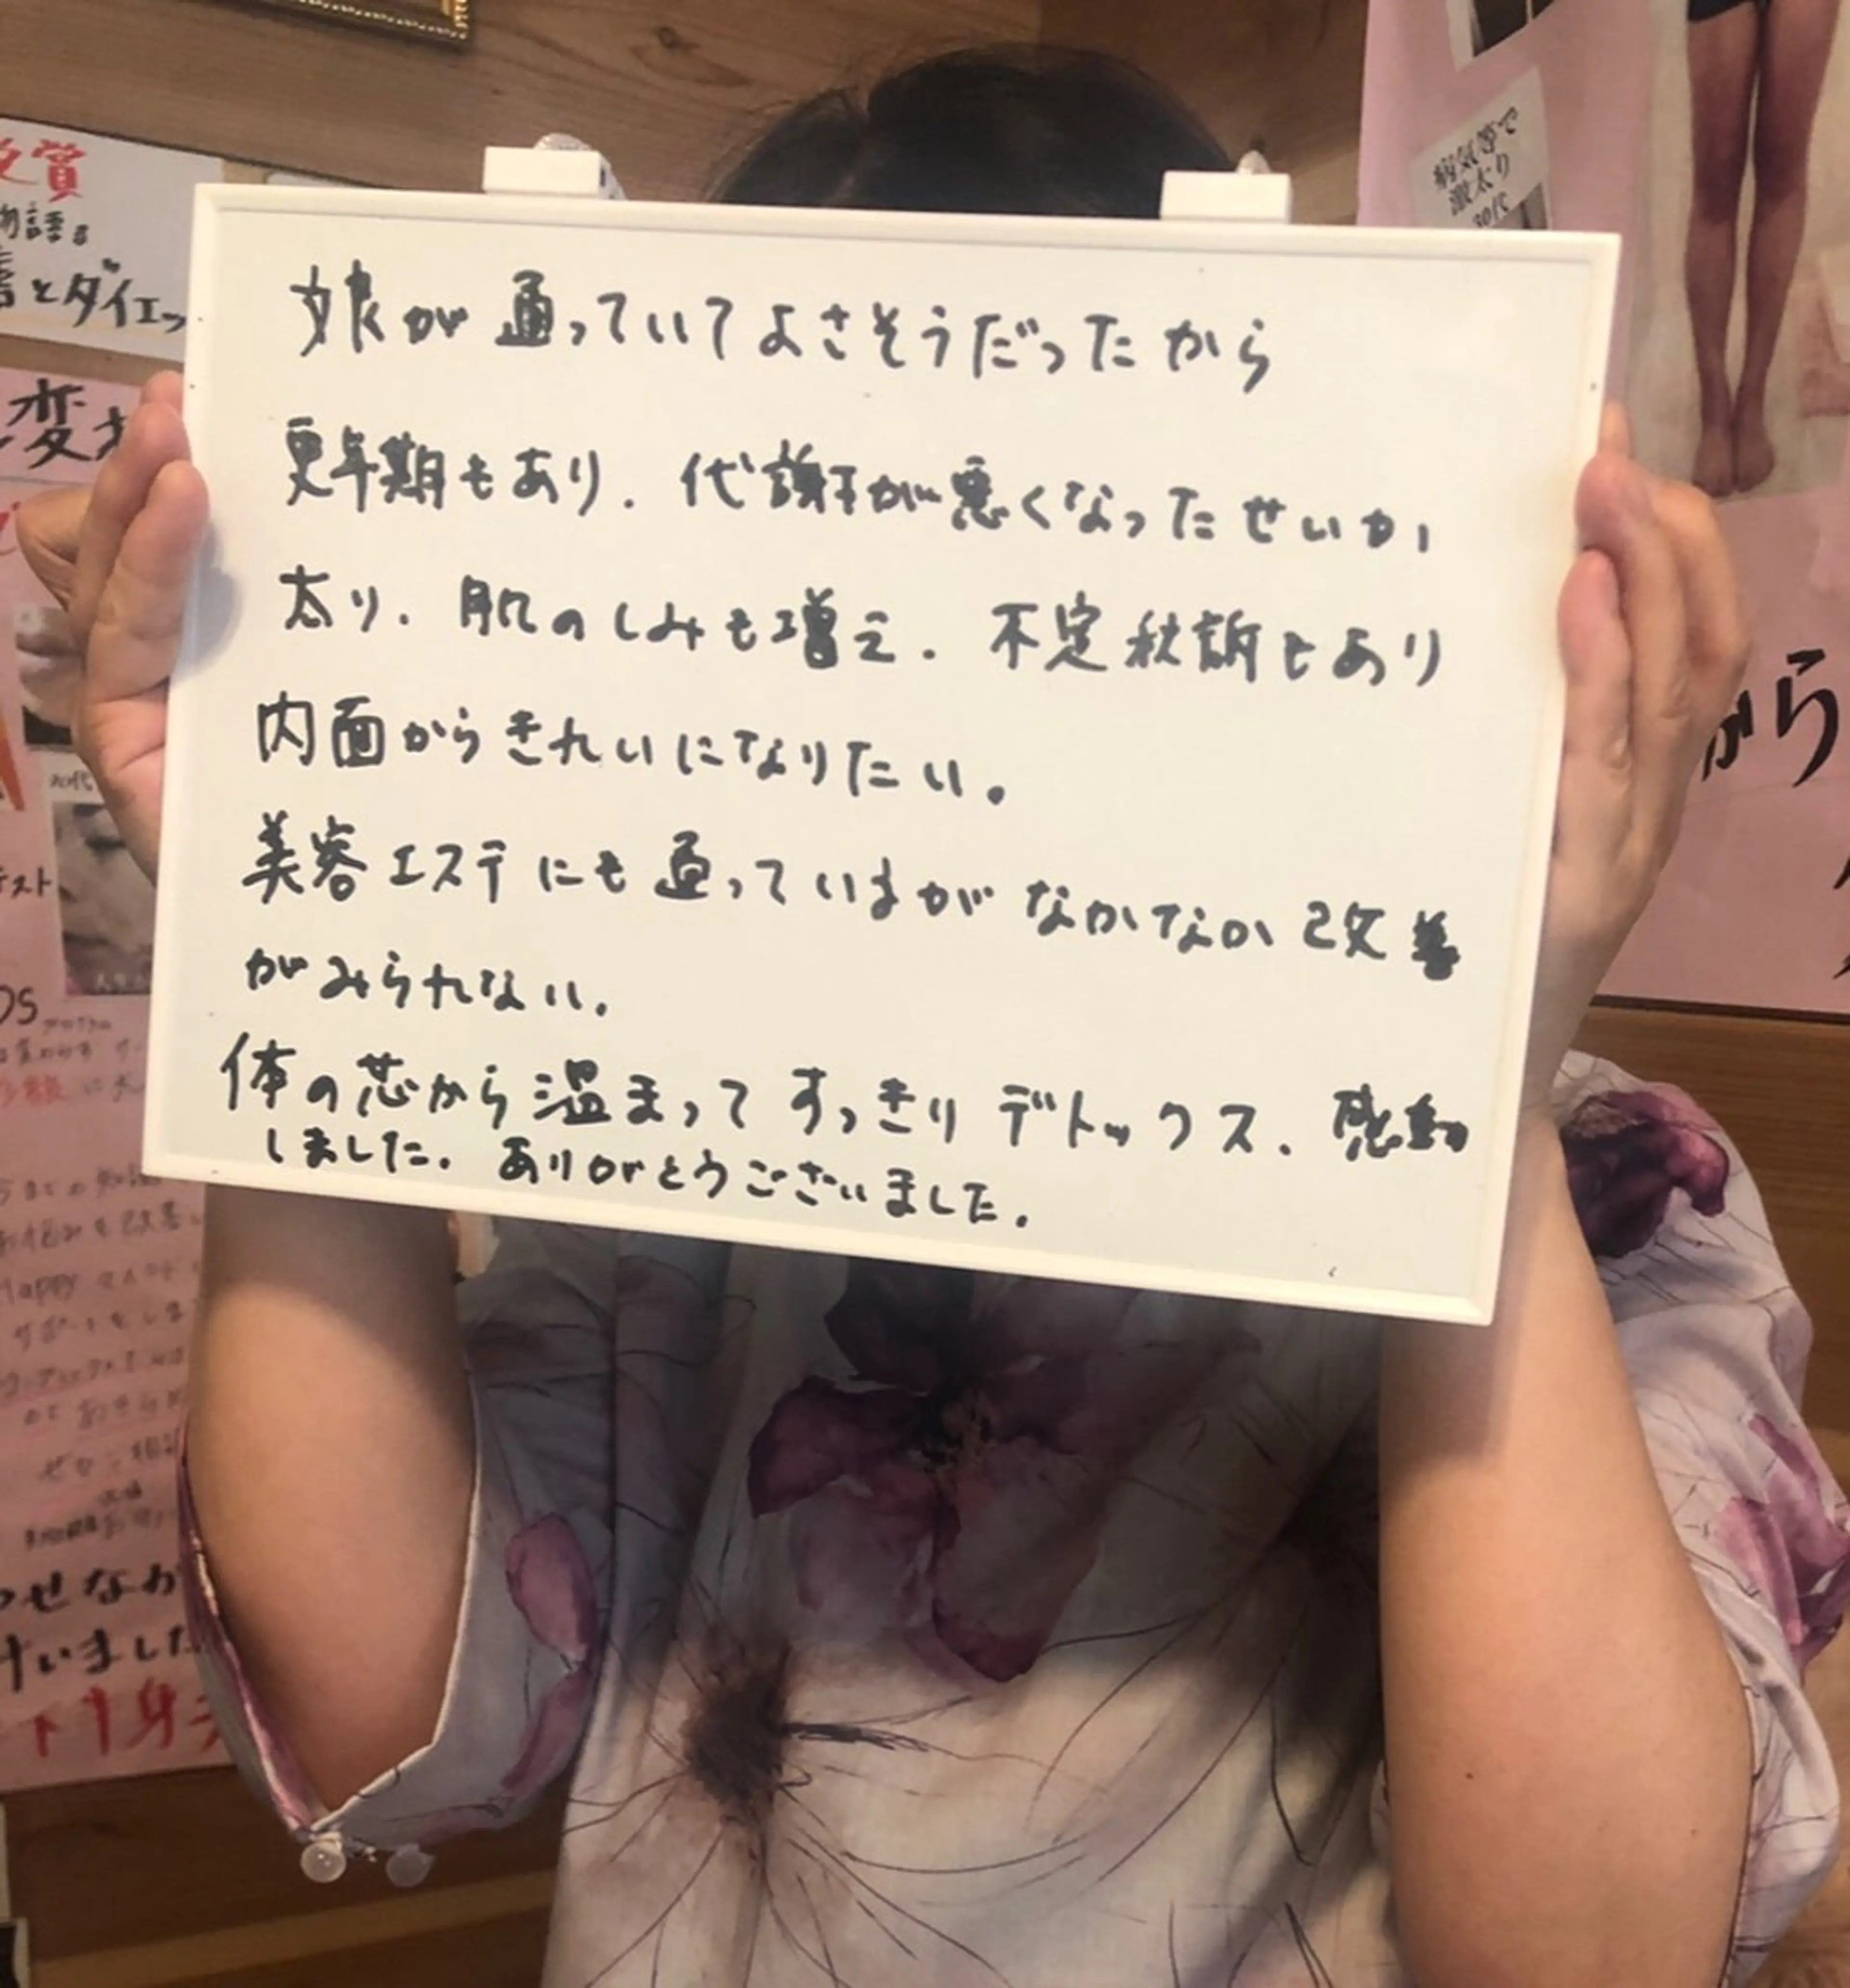 娘が通っていてよさそうだったから
更年期もあり.代謝が悪くなったせいか
太り.肌のしみも増え.不定秋訴もあり
内面からきれいになりたい。
美容エステにも通っていまがなかなか改善
がみられない.
体の芯から温まってすっきりデトックス.感動
しました.ありがとうございました.
受賞
とダイエッ
変
スト
Happy
せなか
いました
身
病気等で
激太り
30代
から